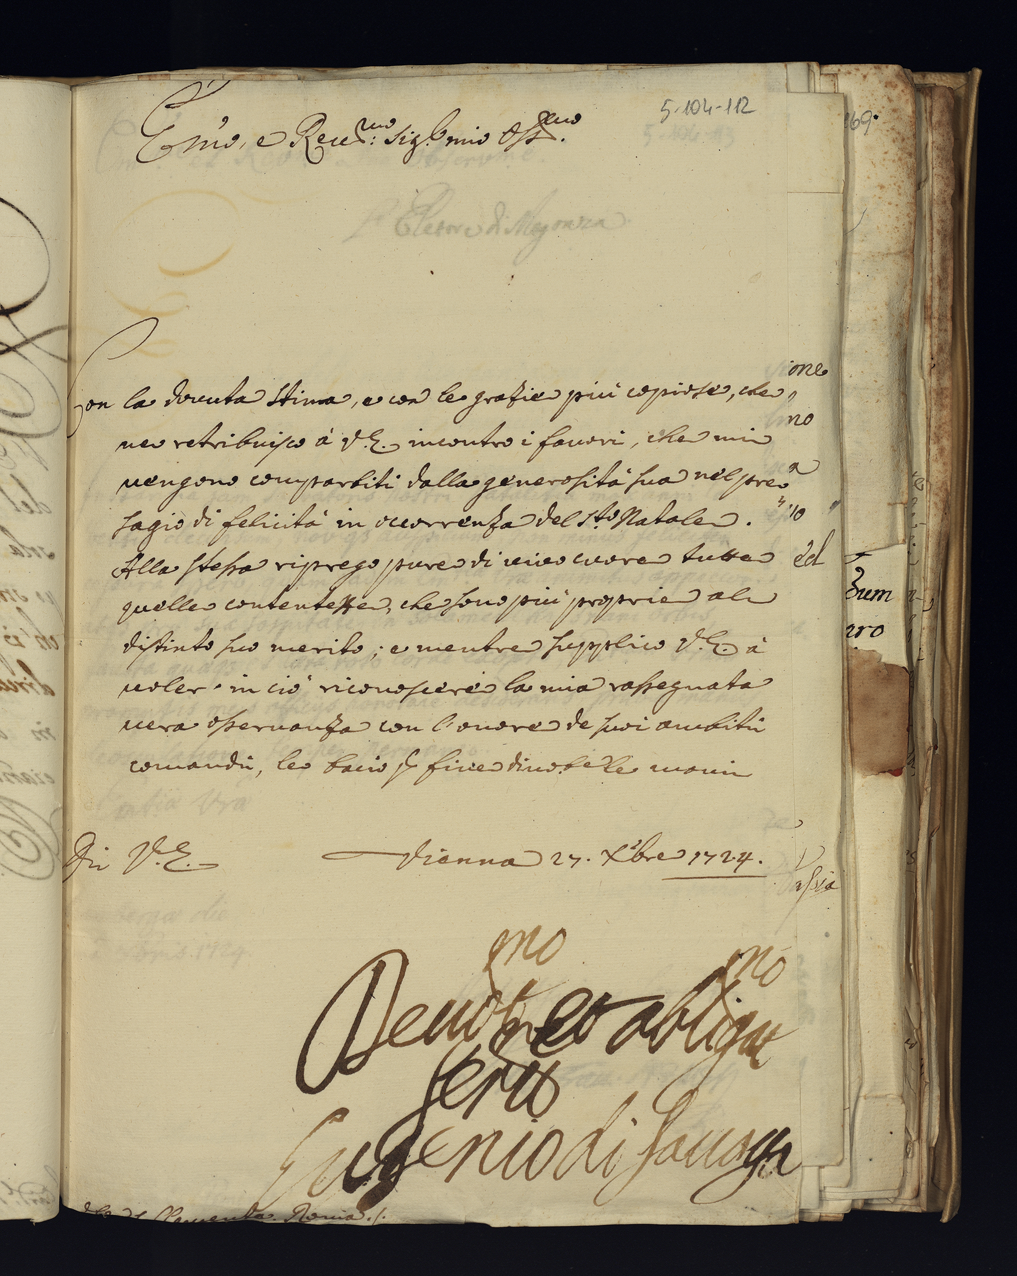 5-104-112
169.
Em̃o, e Reu.mo: Sig.r mio Oss.mo.
Con la douuta stima, e con le grazie più copiose, che
ne retribuisco à V.E. incontro i fauori, che mi
uengono compartiti dalla generosità sua nel pre-
sagio di felicità in occorrenza del S.to Natale.
Alla stessa riprego pure di uiuo cuore tutte
quelle contentezze, che sono più proprie al
distinto suo merito; e mentre supplico V.E. à
uoler in ciò riconoscere la mia rassegnata
uera osseruanza con l'onore de suoi ambiti
comandi, le bacio p fine diuot.te le mani
Di V.E. Vienna 27. Xbre 1724.
Deuot.mo et obligat.mo
seru
Eugenio di Sauoya
Clemente. Roma./.
ione
mo
ed
zum